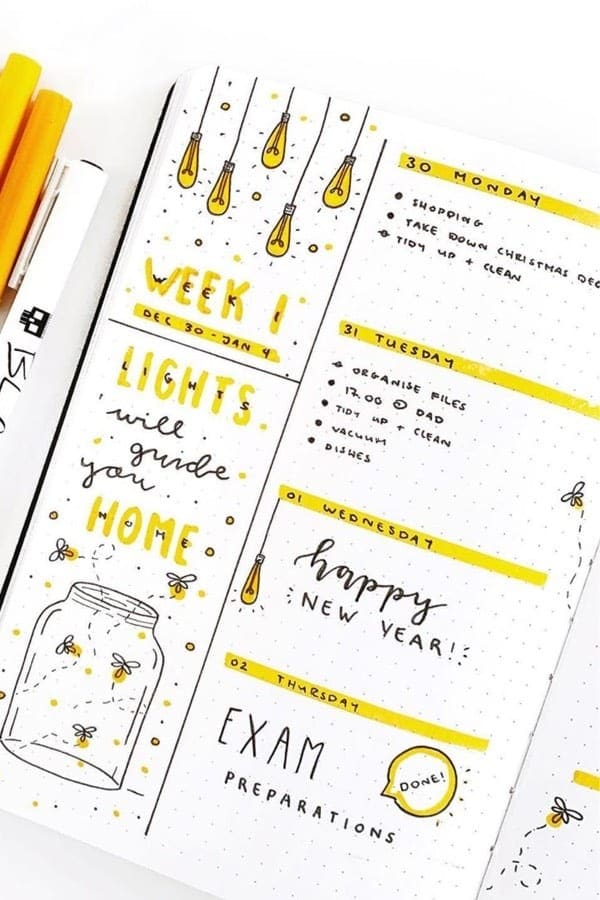 WEEK 1
DEC 30 - JAN 4
LIGHTS
will
guide
you
HOME
30 MONDAY
SHOPPING
TAKE DOWN CHRISTMAS DEC
TIDY UP + CLEAN
31 TUESDAY
ORGANISE FILES
DAD
TIDY UP + CLEAN
VACUUM
DISHES
01 WEDNESDAY
happy
NEW YEAR!
02 THURSDAY
EXAM
PREPARATIONS
DONE!